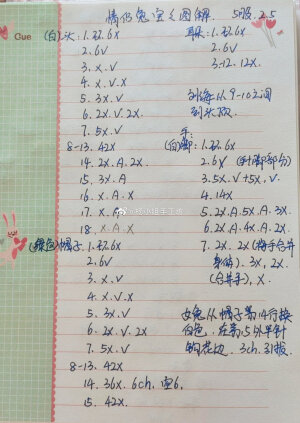 情侣兔宝宝图解 5股 2.5
Gue
(白)头: 1.环6x
2.6V
3.x.V
4.x.V.x
5.3x.V
6.2x.V.2x
7.5x.V
8-13.42x
14.2x.A.2x
15.3x.A
16.x.A.x
17.x.A
18.x.A.x
(绿色)帽子: 1.环6x
2.6V
3.x.V
4.x.V.x
5.3x.V
6.2x.V.2x
7.5x.V
8-13.42x
14.36x.6ch.空6.
15.42x
耳: 1.环6x
2.6V
3-12.12x
9-10之间
手:
(白)脚: 1.环6x
2.6V
3.5x.V+5x.V.
4.14x
5.2x.A.5x.A.3x
6.2x.A.4x.A.2x
7.2x.2x(将手合并
身体).3x,2x.
(合并手),x.
女兔从帽子第14行换
白色.在第15外半针
钩花边.3ch.31拔.